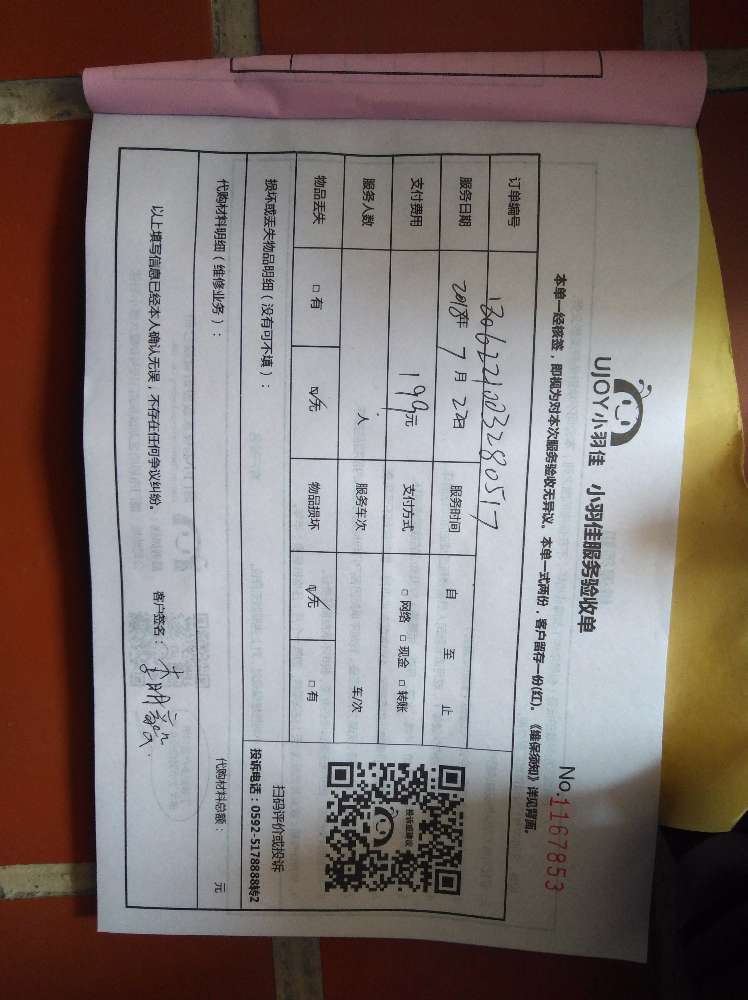 UJOY小羽佳 小羽佳服务验收单
No.1167853
本单一经核签，即视为对本次服务验收无异议。本单一式两份，客户留存一份(红)。《维保须知》详见背面。
订单编号 1306221003280517
服务日期 2018年 7月 2日 服务时间 自 至 止
支付费用 199元 支付方式 □ 网络 □ 现金 □ 转账
服务人数 人 服务车次 车/次
物品丢失 □ 有 ☑ 无 物品损坏 ☑ 无 □ 有
投诉或建议
扫码评价或投诉
投诉电话：0592-5178888转2
损坏或丢失物品明细（没有可不填）：
代购材料明细（维修业务）： 代购材料总额： 元
以上填写信息已经本人确认无误，不存在任何争议纠纷。 客户签名：